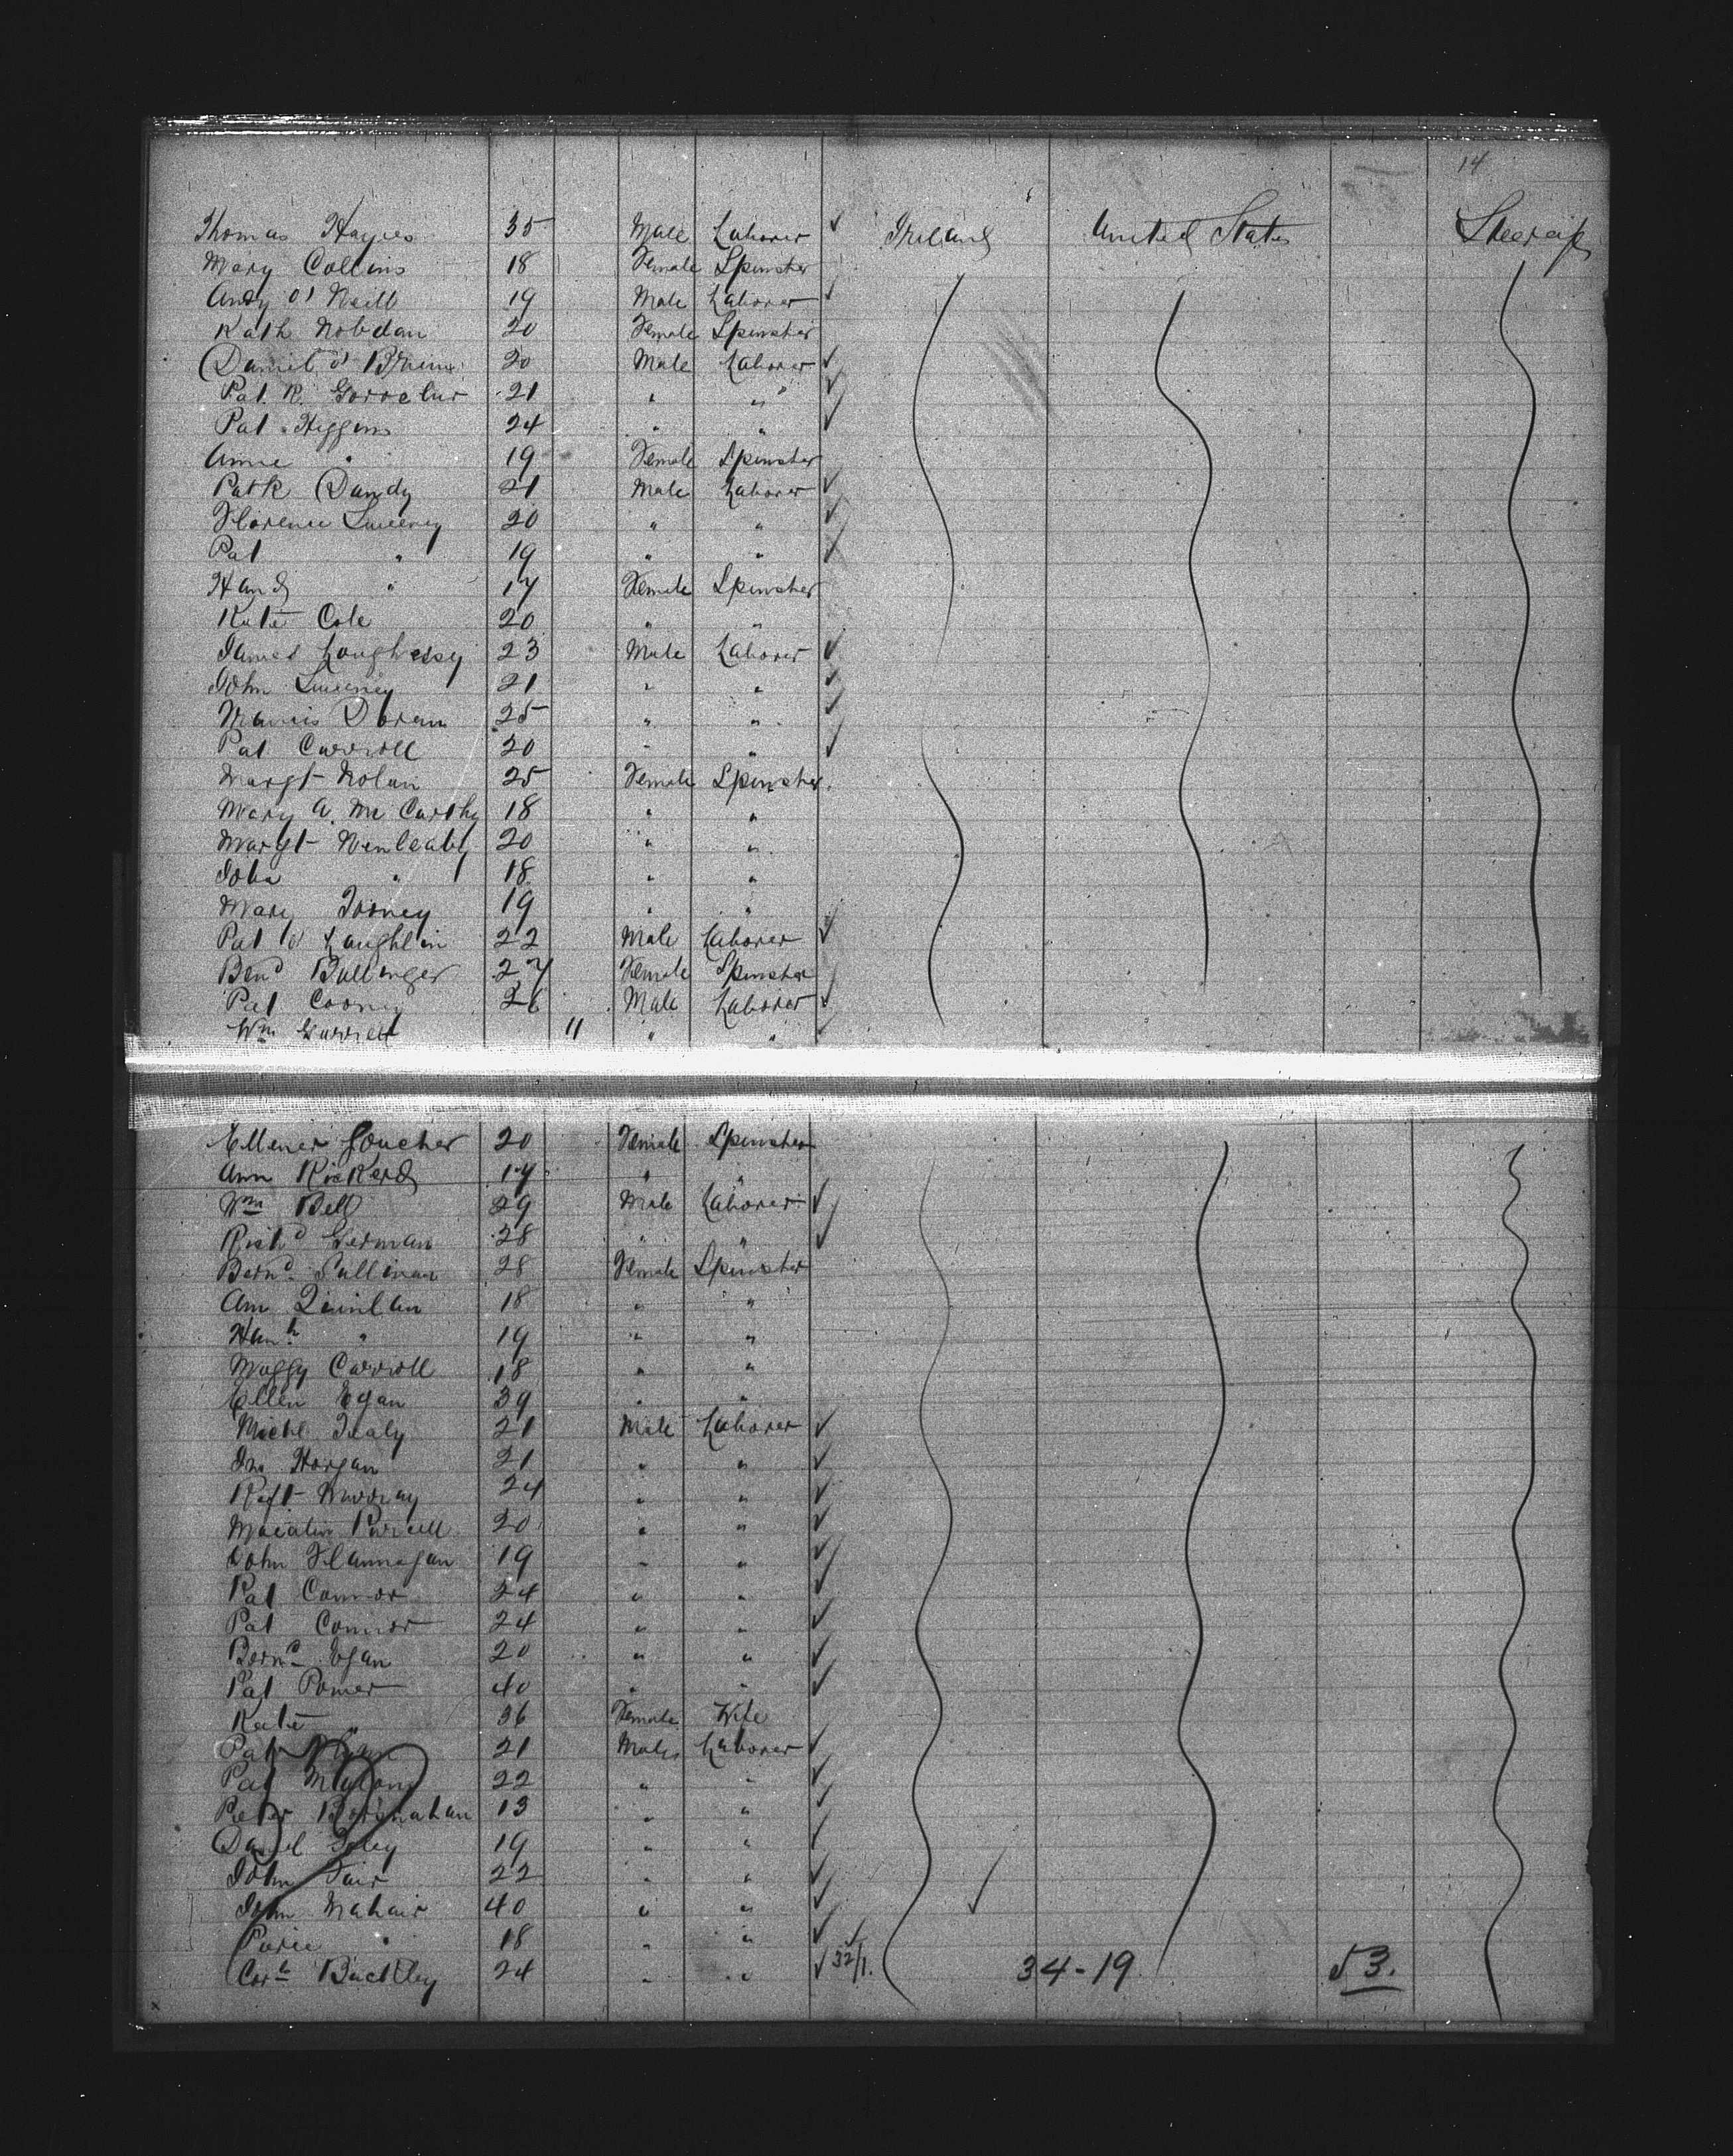 14
Thomas Hayes 35 Male Laborer ✓ Ireland United States Steerage
Mary Collins 18 Female Spinster
Andy O' Neill 19 Male Laborer ✓
Kath 20 Female Spinster
Daniel O' Brien 20 Male Laborer ✓
Pat. R. 21 " " ✓
Pat Higgins 24 " " ✓
Annie " 19 Female Spinster
Patk Dandy 21 Male Laborer ✓
Florence Sweeney 20 " " ✓
Pat " 19 " " ✓
Hand " 17 Female Spinster
Kate Cole 20 " "
James 23 Male Laborer ✓
John Sweeney 21 " " ✓
Francis Doran 25 " " ✓
Pat Carroll 20 " " ✓
Margt Nolan 25 Female Spinster
Mary A. Mc Carthy 18 " "
Margt 20 " "
" 18 " "
Mary 19 " "
Pat O' Laughlin 22 Male Laborer ✓
Bend 27 Female Spinster
Pat Cooney 26 Male Laborer ✓
Wm Garrett 11 " "
20 Female Spinster
Ann Rickerd 17 " "
Wm Bell 29 Male Laborer ✓
Richd German 28 " " ✓
Bernd Sullivan 28 Female Spinster
Ann Quinlan 18 " "
Hanh " 19 " "
Maggy Carroll 18 " "
Ellen Egan 39 " "
Michl 21 Male Laborer ✓
Jno Horgan 21 " " ✓
Murray 24 " " ✓
Purcell 20 " " ✓
John Flannagan 19 " " ✓
Pat Connor 24 " " ✓
Pat Connor 24 " " ✓
Bernd Egan 20 " " ✓
Pat Power 40 " " ✓
Kate " 36 Female Wife
Pat 21 Males Laborer ✓
Pat 22 " " ✓
Peter 13 " " ✓
Daniel Foley 19 " " ✓
John Fair 22 " " ✓
John 40 " " ✓
" 18 " " ✓
Corn Buckley 24 " " ✓ 32/1. 34-19 53.